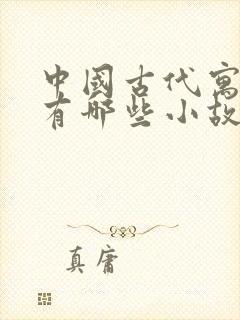 中國古代寓
有哪些小故
真庸